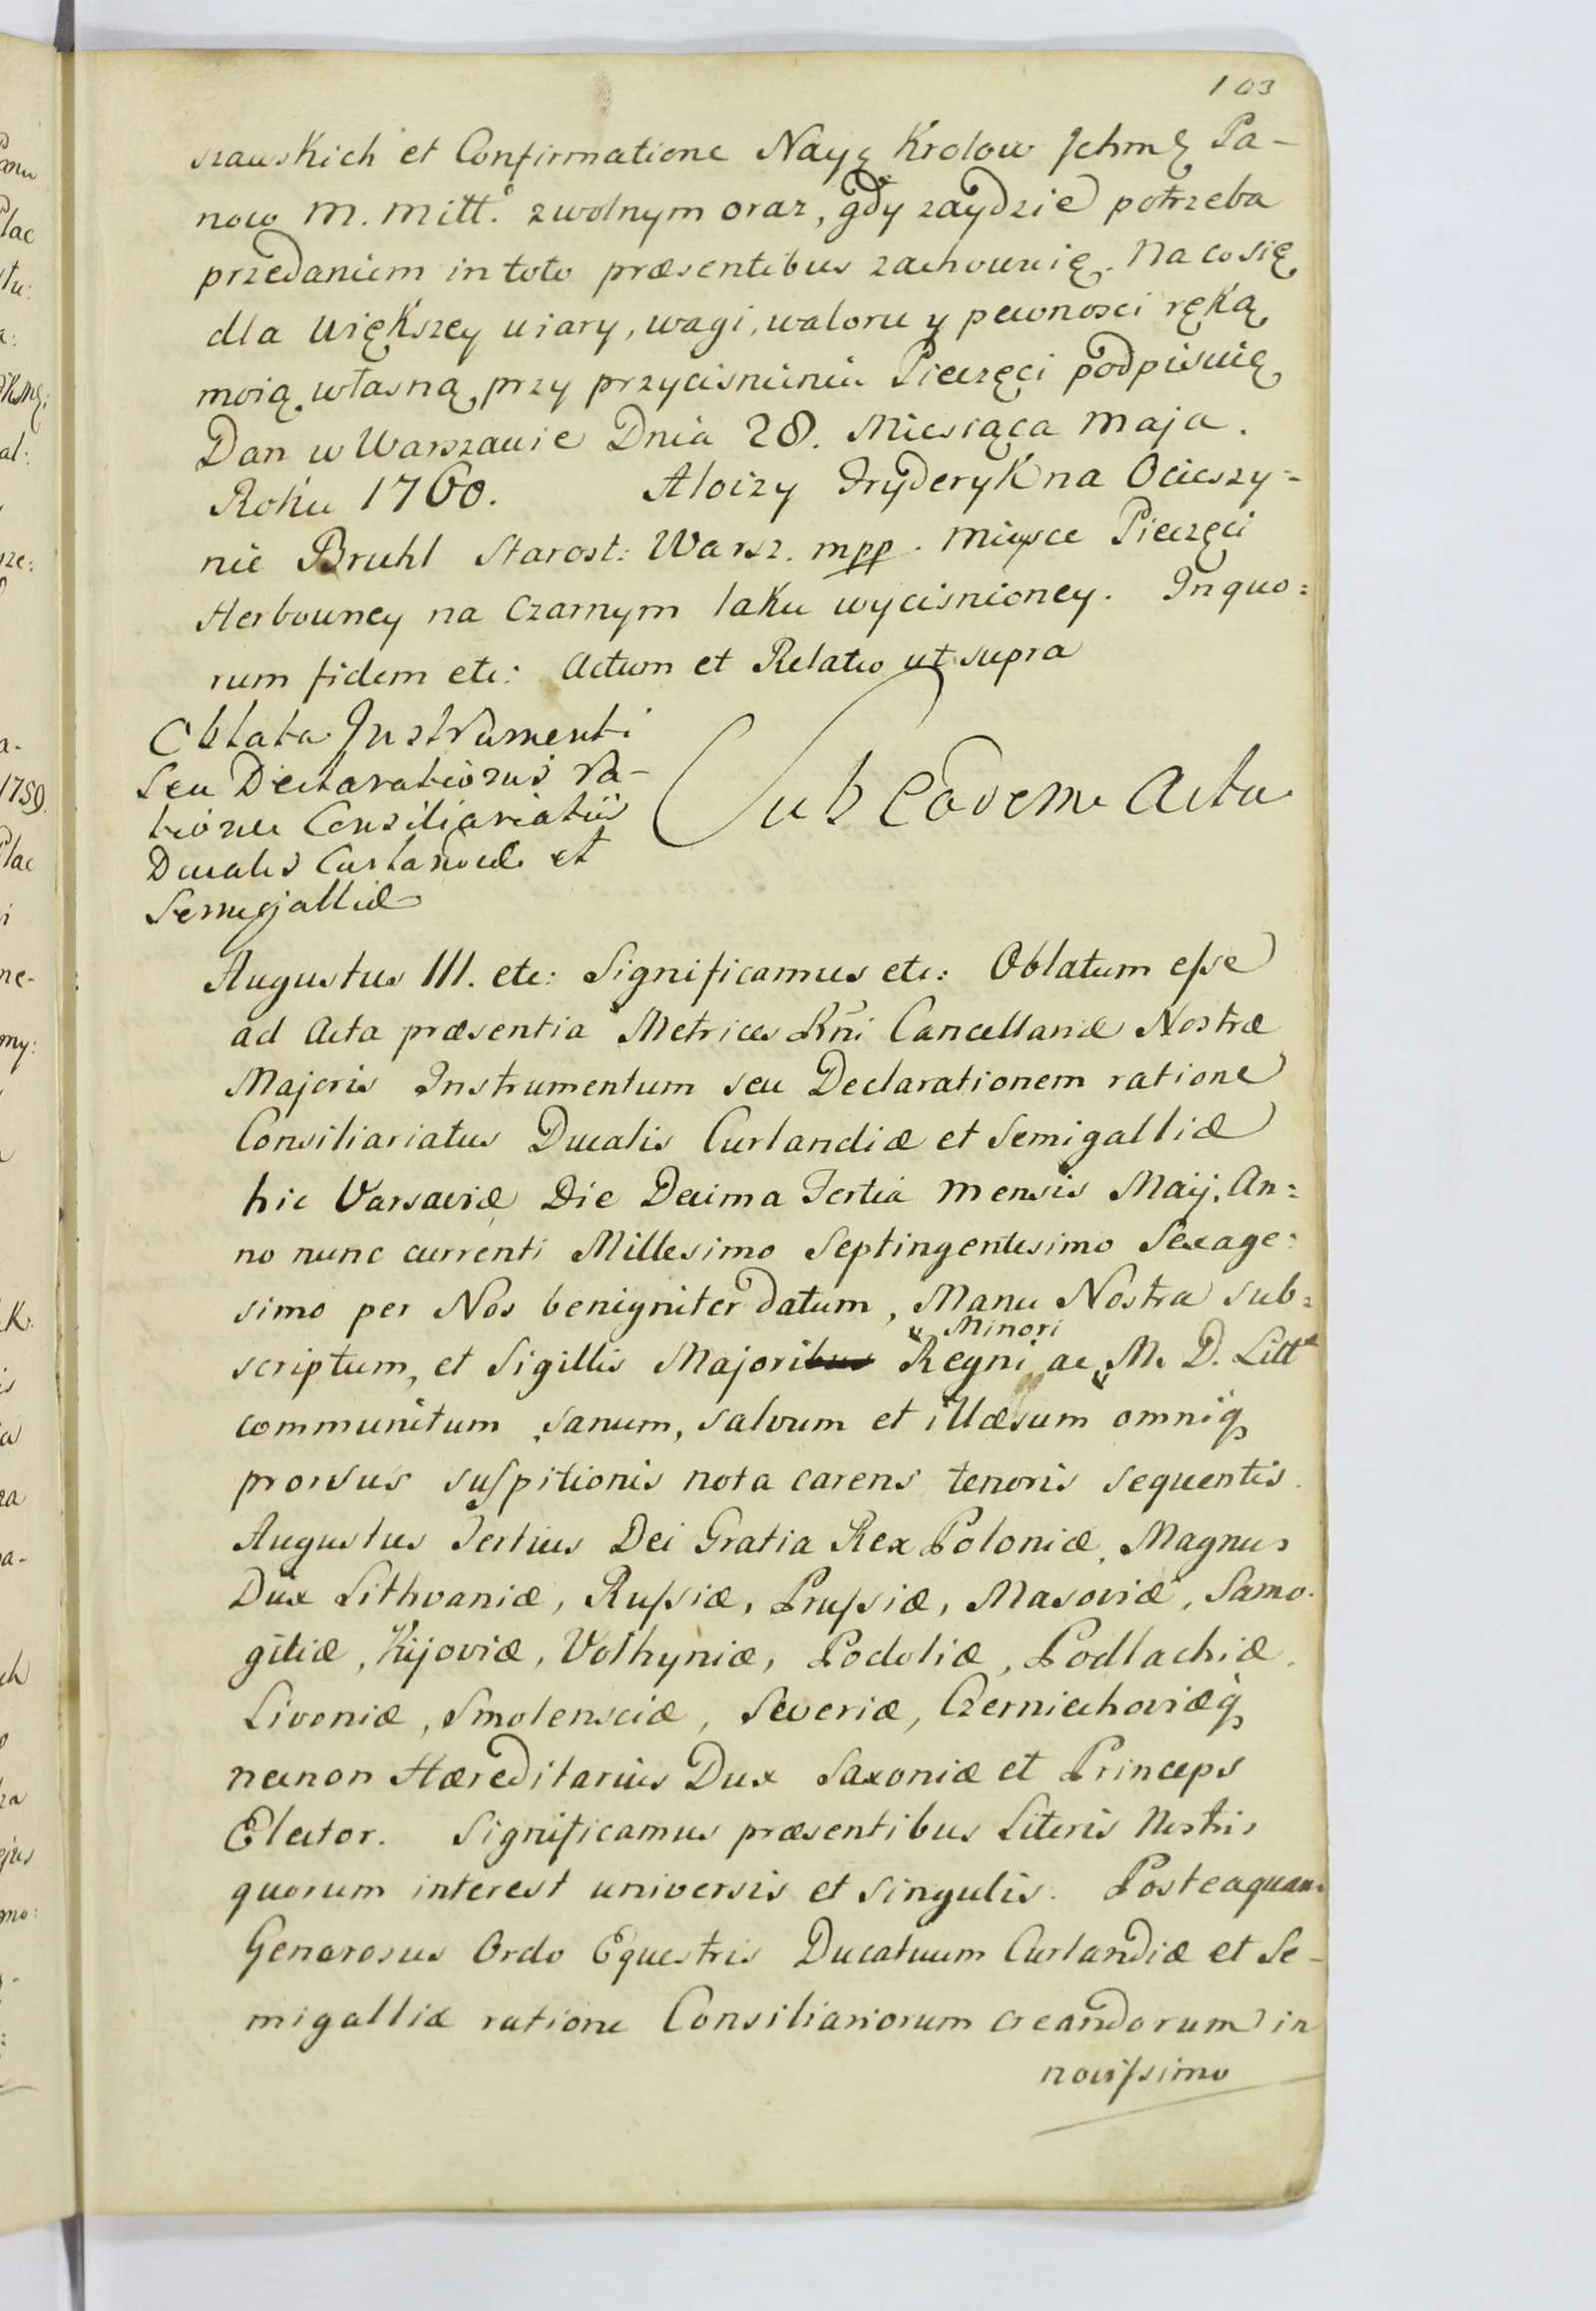 103
szawskich et Confirmatione Nayę Krolow Jchmę Pa-
now M. Mitt.ͦ zwolnym oraz, gdy zaydzie potrzeba
przedaniem in toto præsentibus zachowuię. Na co się
dla większey wiary, wagi, waloru y pewnosci ręką
moią własną przy przycisnieniu Pieczęci podpisuię
Dan w Warszawie Dnia 28. Miesiąca Maja.
Roku 1760. Aloizy Fryderyk na Ocieszy=
nie Bruhl Starost: Warsz. mpp. Mieysce Pieczęci
Herbowney na Czarnym laku wycisnioney. In quo=
rum fidem etc: Actum et Relatio ut supra
Oblata Instrumenti
seu Declarationis ra-
tione Consiliariatus
Ducalis Curlandiæ et
Semigalliæ
Sub Eodem Actu
Augustus III. etc: Significamus etc: Oblatum esse
ad Acta præsentia Metrices Rñi Cancellariæ Nostræ
Majoris Instrumentum seu Declarationem ratione
Consiliariatus Ducalis Curlandiæ et Semigalliæ
hic Varsaviæ Die Decima Tertia Mensis Maij, An=
no nunc currenti Millesimo Septingentesimo Sexage=
simo per Nos benigniter datum, Manu Nostra sub=
Minori
scriptum, et Sigillis Majoribus Regni ac M. D. Litt
communitum sanum, salvum et illæsum omniq́
prorsus suspitionis nota carens tenoris sequentis.
Augustus Tertius Dei Gratia Rex Poloniæ, Magnus
Dux Lithvaniæ, Russiæ, Prussiæ, Masoviæ, Samo-
gitiæ, Kijoviæ, Volhyniæ, Podoliæ, Podlachiæ,
Livoniæ, Smolensciæ, Severiæ, Czerniechoviæq́
necnon Hæreditarius Dux Saxoniæ et Princeps
Elector. Significamus præsentibus Literis Nostris
quorum interest universis et singulis. Posteaquam
Generosus Ordo Equestris Ducatuum Curlandiæ et Se-
migalliæ ratione Consiliariorum creandorum in
novissimo